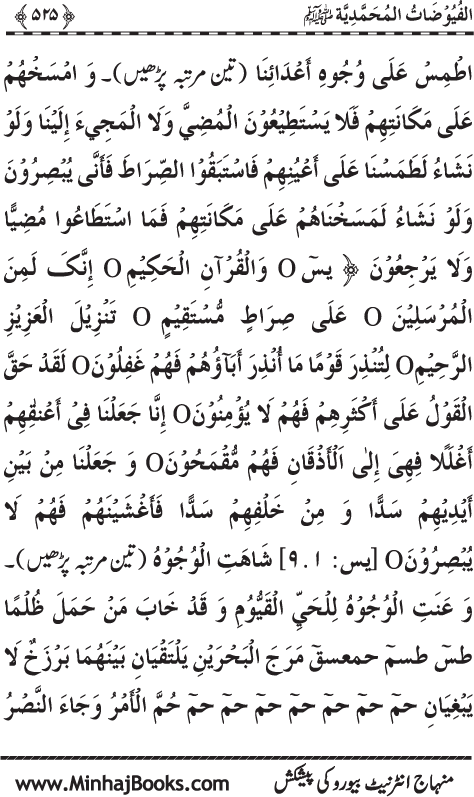 الفُيُوْضَاتُ المُحَمَّدِيَّة ﷺ ﴿۵۲۵﴾
اطْمِسْ عَلَى وُجُوهِ أَعْدَائِنَا (تین مرتبہ پڑھیں)۔ وَ امْسَخْهُمْ
عَلَى مَكَانَتِهِمْ فَلَا يَسْتَطِيعُوْنَ الْمُضِيَّ وَلَا الْمَجِيءَ إِلَيْنَا وَلَوْ
نَشَاءُ لَطَمَسْنَا عَلَى أَعْيُنِهِمْ فَاسْتَبَقُوْا الصِّرَاطَ فَأَنَّى يُبْصِرُوْنَ
وَلَوْ نَشَاءُ لَمَسَخْنَاهُمْ عَلَى مَكَانَتِهِمْ فَمَا اسْتَطَاعُوا مُضِيًّا
وَلَا يَرْجِعُوْنَ ﴿ يسٓ O وَالْقُرْآنِ الْحَكِيْمِ O إِنَّكَ لَمِنَ
الْمُرْسَلِيْنَ O عَلَى صِرَاطٍ مُّسْتَقِيْمٍ O تَنْزِيْلَ الْعَزِيْزِ
الرَّحِيْمِ O لِتُنْذِرَ قَوْمًا مَا أُنْذِرَ أَبَآؤُهُمْ فَهُمْ غٰفِلُوْنَ O لَقَدْ حَقَّ
الْقَوْلُ عَلَى أَكْثَرِهِمْ فَهُمْ لَا يُؤْمِنُوْنَ O إِنَّا جَعَلْنَا فِىْ أَعْنٰقِهِمْ
أَغْلٰلًا فَهِىَ إِلَى الْأَذْقَانِ فَهُمْ مُّقْمَحُوْنَ O وَ جَعَلْنَا مِنْ بَيْنِ
أَيْدِيْهِمْ سَدًّا وَ مِنْ خَلْفِهِمْ سَدًّا فَأَغْشَيْنٰهُمْ فَهُمْ لَا
يُبْصِرُوْنَ O [يس: ٩.١] شَاهَتِ الْوُجُوْهُ (تین مرتبہ پڑھیں)۔
وَ عَنَتِ الْوُجُوْهُ لِلْحَيِّ الْقَيُّوْمِ وَ قَدْ خَابَ مَنْ حَمَلَ ظُلْمًا
طسٓ طسمٓ حمعسقٓ مَرَجَ الْبَحْرَيْنِ يَلْتَقِيَانِ بَيْنَهُمَا بَرْزَخٌ لَا
يَبْغِيَانِ حمٓ حمٓ حمٓ حمٓ حمٓ حمٓ حمٓ حُمَّ الْأَمْرُ وَجَاءَ النَّصْرُ
منہاج انٹرنیٹ بیورو کی پیشکش www.MinhajBooks.com